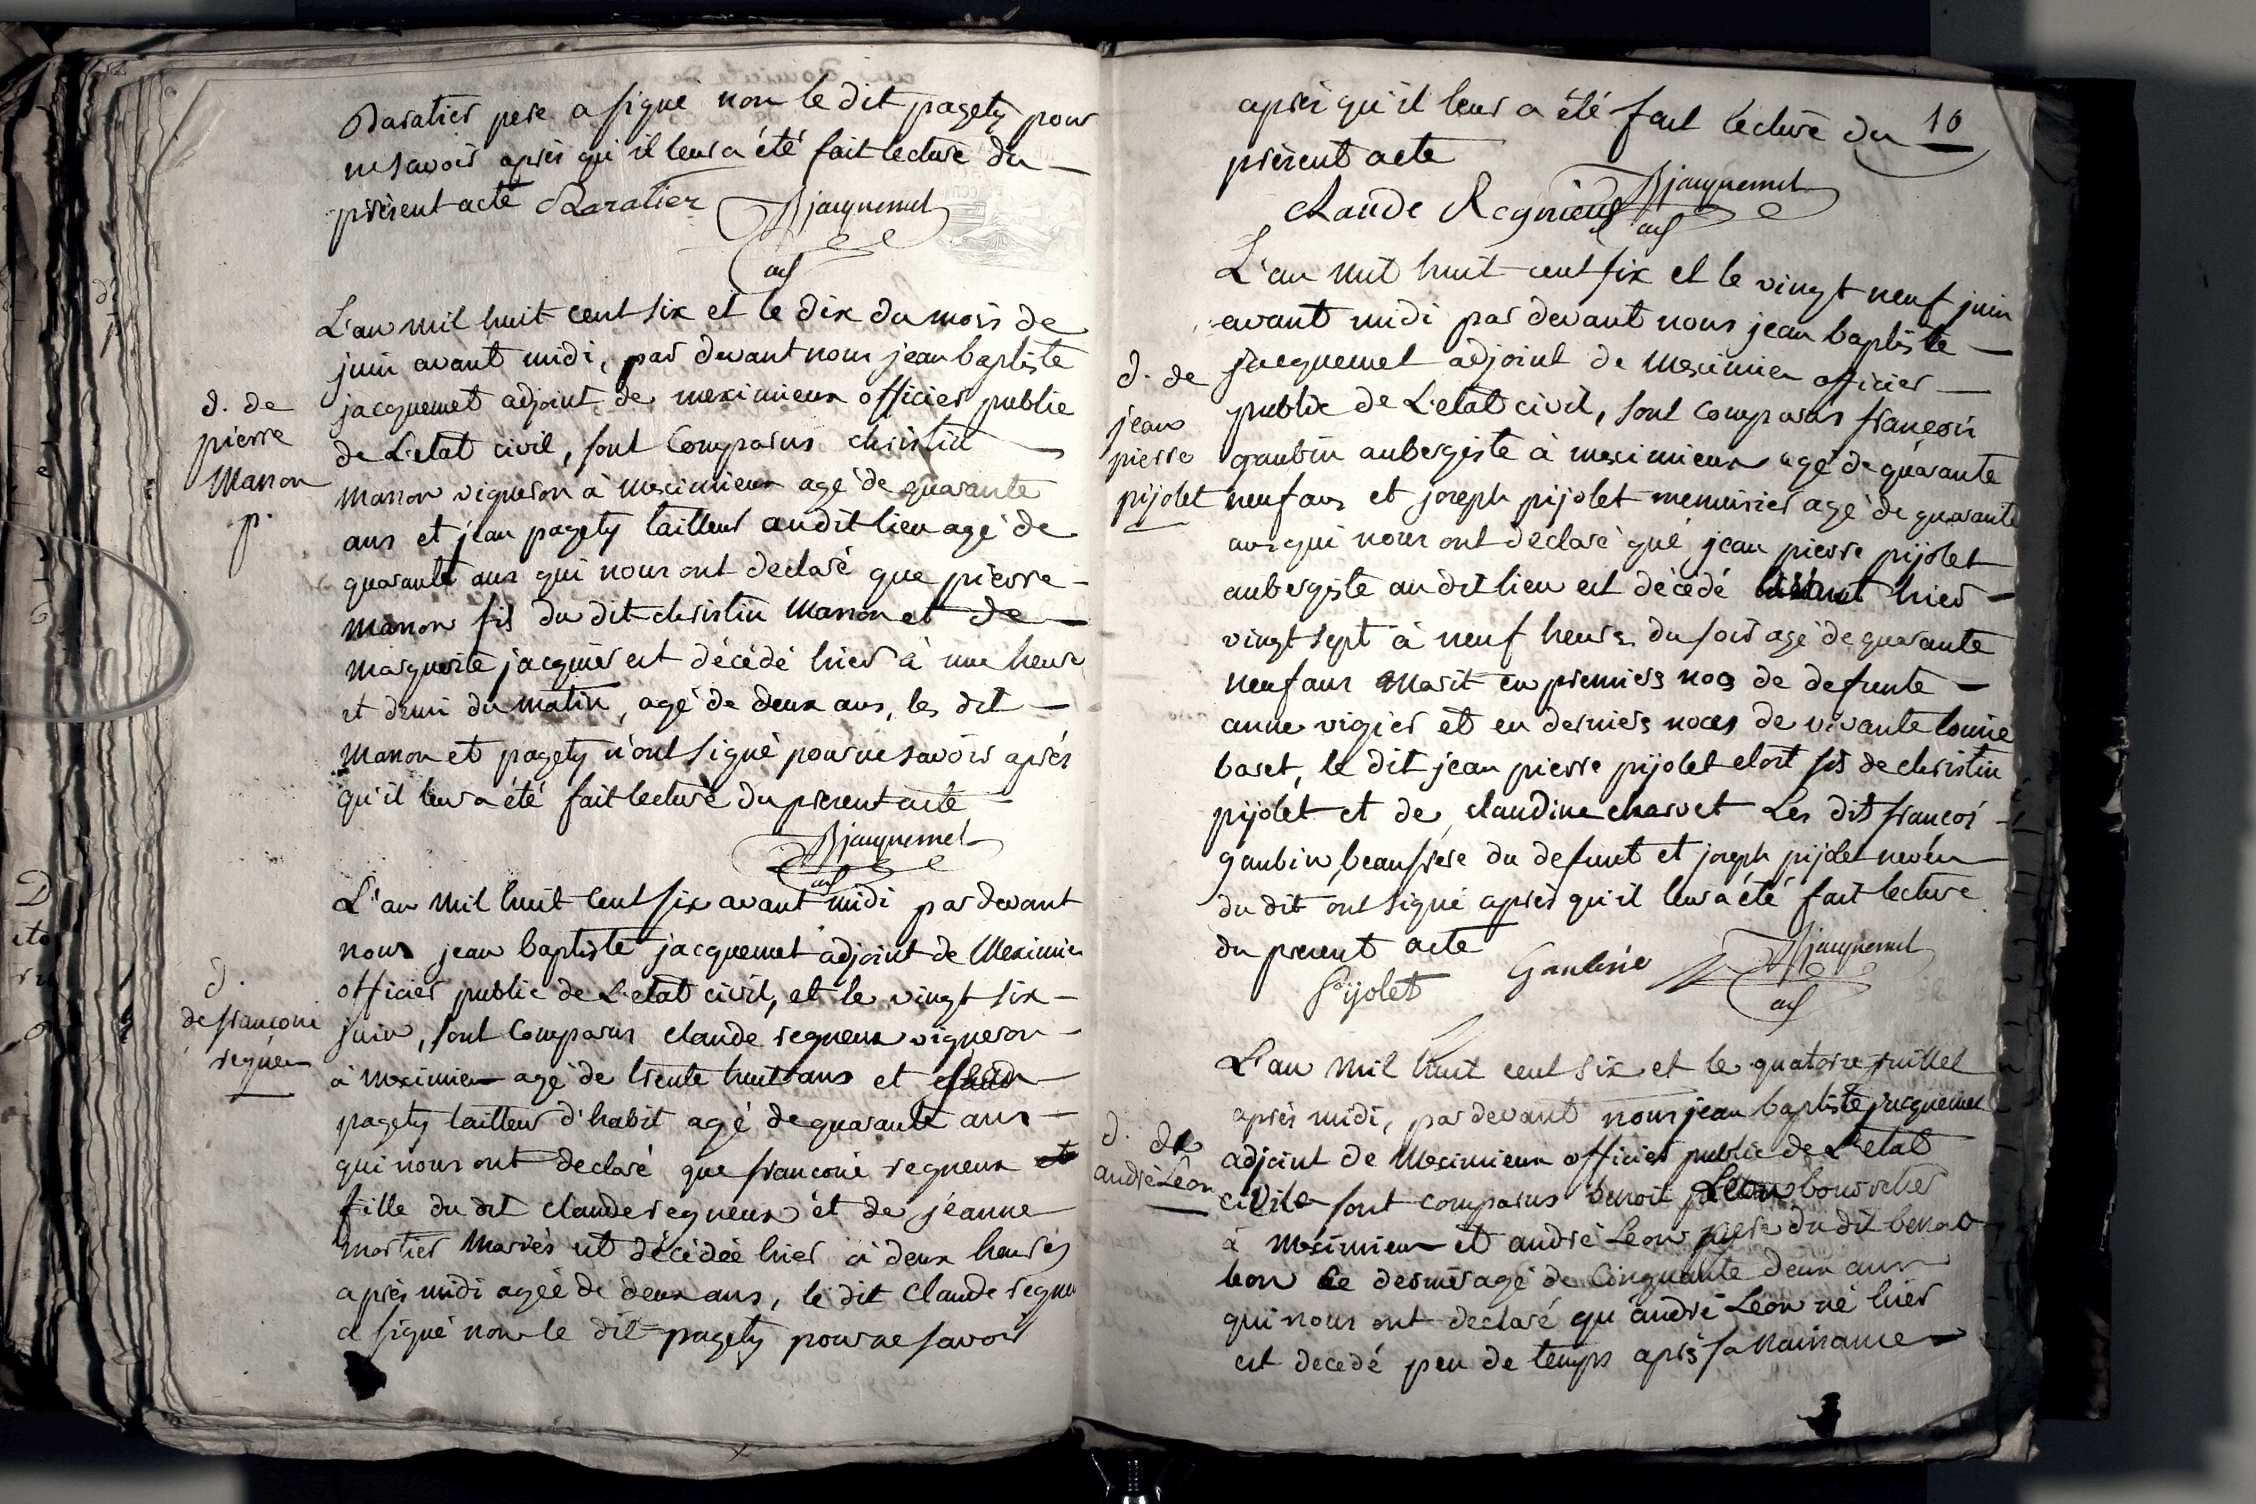 Baratier pere a signé non le dit pagety pour
ne savoir après qu'il leur a été fait lecture du
présent acte Baratier Bjacquemet
adj
L'an mil huit cent six et le dix du mois de
juin avant midi, par devant nous jean baptiste
jacquemet adjoint de meximieux officier public
de L'etat civil, sont Comparus christin
manon vigneron à meximieux agé de quarante
ans et jean pagety tailleur au dit lieu agé de
quarante ans qui nous ont declaré que pierre
manon fils du dit christin Manon et de
marguerite jacquier est décédé hier à une heure
et demi du matin, agé de deux ans, les dit
Manon et pagety n'ont signé pour ne savoir après
qu'il leur a été fait lecture du present acte
Bjacquemet
adj
d. de
pierre
Manon
p.
L'an mil huit cent six avant midi par devant
nous jean baptiste jacquemet adjoint de Meximieu
officier public de L'etat civil, et le vingt six
juin, sont Comparus claude regneux vigneron
à meximieu agé de trente huit ans et jean
pagety tailleur d'habit agé de quarante ans
qui nous ont declaré que françoise regneux et
fille du dit claude regneux et de jéanne
mortier Mariés est décédée hier à deux heures
après midi agéé de deux ans, le dit Claude regneu
a signé non le dit pagety pour ne savoir
d.
de françoise
regneu
10
après qu'il leur a été fait lecture du
présent acte
Claude Regnieus Bjacquemet
adj
L'an mil huit cent six et le vingt neuf juin
avant midi par devant nous jean baptiste
jacquemet adjoint de Meximieu officier
public de L'etat civil, sont comparus françois
gaubin aubergiste à meximieux agé de quarante
neuf ans et joseph pijolet menuisier agé de quarante
ans qui nous ont declaré qué jean pierre pijolet
aubergiste au dit lieu est décédé hier
vingt sept à neuf heures du soir agé de quarante
neuf ans Marit en premiers nocs de defunte
anne vigier et en derniers noces de vivante louise
baret, le dit jean pierre pijolet etoit fils de christin
pijolet et de claudine charvet Les dit françoi
gaubin beaufrere du defunt et joseph pijolet neveu
du dit ont signé après qu'il leur a été fait lecture
du present acte
Pijolet Gaubin Bjacquemet
adj
d. de
jean
pierre
pijolet
L'an mil huit cent six et le quatorze juillet
après midi, par devant nous jean baptiste jacquemet
adjoint de Meximieux officier public de L'etat
civile sont comparus benoit Leon bourrelier
à meximieux et andré Leon pere du dit benoit
leon ce dernier agé de Cinquante deux ans
qui nous ont declaré qu'andré Léon né hier
est decedé peu de temps après sa naissance
d. de
andré Léon